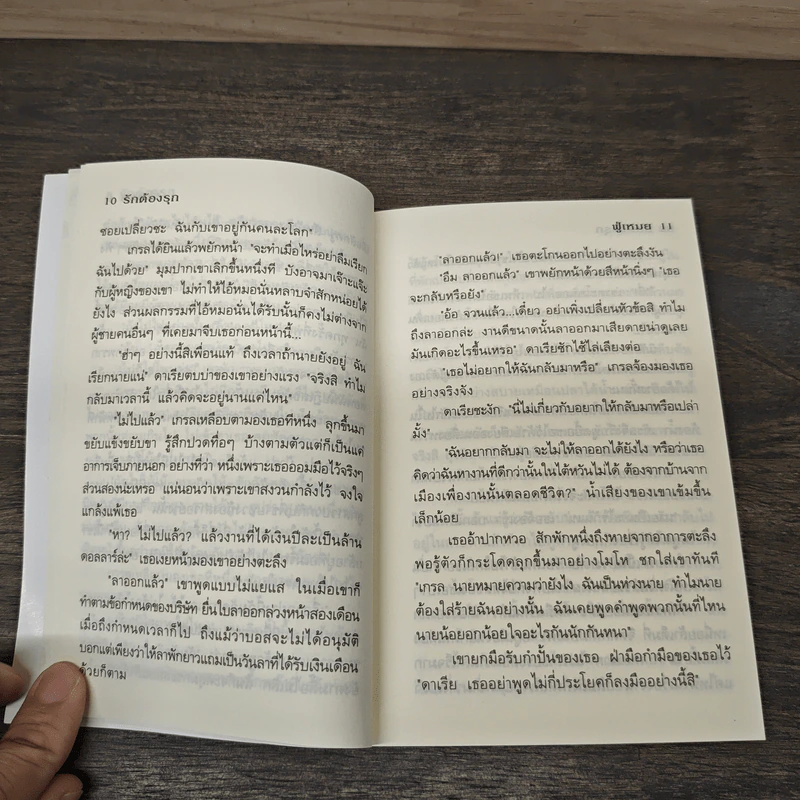 10 รักต้องรุก
ซอยเปลี่ยวซะ ฉันกับเขาอยู่กันคนละโลก"
เกรลได้ยินแล้วพยักหน้า "จะทำเมื่อไหร่อย่าลืมเรียก
ฉันไปด้วย" มุมปากเขาเลิกขึ้นหนึ่งที บังอาจมาเจ๊าะแจ๊ะ
กับผู้หญิงของเขา ไม่ทำให้ไอ้หมอนั่นหลาบจำสักหน่อยได้
ยังไง ส่วนผลกรรมที่ไอ้หมอนั่นได้รับนั้นก็คงไม่ต่างจาก
ผู้ชายคนอื่นๆ ที่เคยมาจีบเธอก่อนหน้านี้...
"ฮ่าๆ อย่างนี้สิเพื่อนแท้ ถึงเวลาถ้านายยังอยู่ ฉัน
เรียกนายแน่" ดาเรียตบบ่าของเขาอย่างแรง "จริงสิ ทำไม
กลับมาเวลานี้ แล้วคิดจะอยู่นานแค่ไหน"
"ไม่ไปแล้ว" เกรลเหลือบตามองเธอทีหนึ่ง ลุกขึ้นมา
ขยับแข้งขยับขา รู้สึกปวดทื่อๆ บ้างตามตัวแต่ก็เป็นแค่
อาการเจ็บภายนอก อย่างที่ว่า หนึ่งเพราะเธอออมมือไว้จริงๆ
ส่วนสองน่ะเหรอ แน่นอนว่าเพราะเขาสงวนกำลังไว้ จงใจ
แกล้งแพ้เธอ
"หา? ไม่ไปแล้ว? แล้วงานที่ได้เงินปีละเป็นล้าน
ดอลลาร์ล่ะ" เธอเงยหน้ามองเขาอย่างตะลึง
"ลาออกแล้ว" เขาพูดแบบไม่แยแส ในเมื่อเขาก็
ทำตามข้อกำหนดของบริษัท ยื่นใบลาออกล่วงหน้าสองเดือน
เมื่อถึงกำหนดเวลาก็ไป ถึงแม้ว่าบอสจะไม่ได้อนุมัติ
บอกแต่เพียงว่าให้ลาพักยาวแถมเป็นวันลาที่ได้รับเงินเดือน
ด้วยก็ตาม
ฟู่เหมย 11
"ลาออกแล้ว!" เธอตะโกนออกไปอย่างตะลึงงัน
"อืม ลาออกแล้ว" เขาพยักหน้าด้วยสีหน้านิ่งๆ "เธอ
จะกลับหรือยัง"
"อ้อ จวนแล้ว...เดี๋ยว อย่าเพิ่งเปลี่ยนหัวข้อสิ ทำไม
ถึงลาออกล่ะ งานดีขนาดนั้นลาออกมาเสียดายน่าดูเลย
มันเกิดอะไรขึ้นเหรอ" ดาเรียซักไซ้ไล่เลียงต่อ
"เธอไม่อยากให้ฉันกลับมาหรือ" เกรลจ้องมองเธอ
อย่างจริงจัง
ดาเรียชะงัก "นี่ไม่เกี่ยวกับอยากให้กลับมาหรือเปล่า
มั้ง"
"ฉันอยากกลับมา จะไม่ให้ลาออกได้ยังไง หรือว่าเธอ
คิดว่าฉันหางานที่ดีกว่านั้นในไต้หวันไม่ได้ ต้องจากบ้านจาก
เมืองเพื่องานนั้นตลอดชีวิต?" น้ำเสียงของเขาเข้มขึ้น
เล็กน้อย
เธออ้าปากหวอ สักพักหนึ่งถึงหายจากอาการตะลึง
พอรู้ตัวก็กระโดดลุกขึ้นมาอย่างโมโห ชกใส่เขาทันที
"เกรล นายหมายความว่ายังไง ฉันเป็นห่วงนาย ทำไมนาย
ต้องใส่ร้ายฉันอย่างนั้น ฉันเคยพูดคำพูดพวกนั้นที่ไหน
นายน้อยอกน้อยใจอะไรกันนักกันหนา"
เขายกมือรับกำปั้นของเธอ ฝ่ามือกำมือของเธอไว้
"ดาเรีย เธออย่าพูดไม่กี่ประโยคก็ลงมืออย่างนี้สิ"